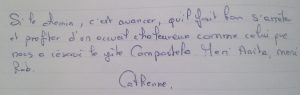 Si le chemin, c'est avancer, qu'il fait bon s'arrêter
et profiter d'un accueil chaleureux comme celui que
nous a réservé le gîte Compostela Merci Anita, merci
Rob.
Catherine.